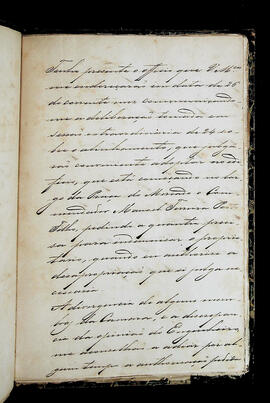 Tenho presente o officio que V. Mces
me endereçarão em data de 26
do corrente me communicando-
me a deliberação tomada em
sessão extraordinaria de 24 so-
bre o alinhamento, que julga-
rão conveniente adoptar no edi-
ficio, que está começado no lar-
go da Praça do Mercado o Com-
mendador Manoel Ferreira
Filho, pedindo a quantia preci-
sa para indemnisar o proprie-
tario, quando eu authorise a
desapropriação que se julga ne-
cessaria.
A divergencia de alguns mem-
bros da Camara, e a discrepan-
cia da opinião do Engenheiro,
me aconselhão a adiar por al-
gum tempo a authorisação pedida